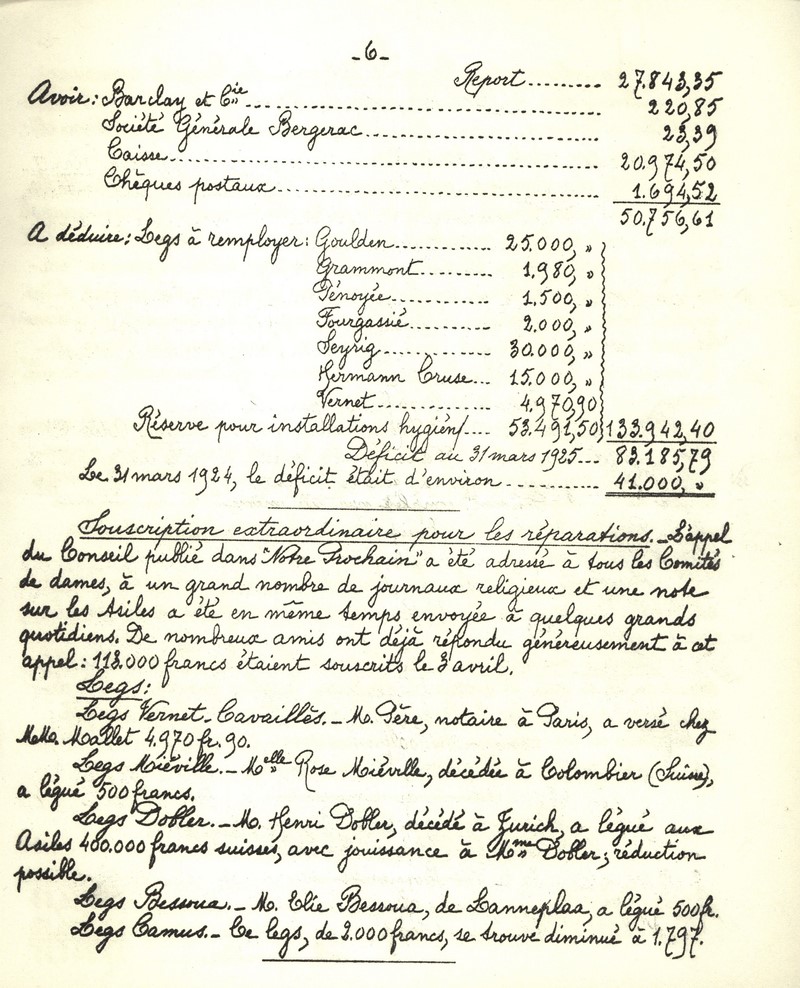 -6-
Report......... 27.843,35
Avoir: Barclay et Cie................................................ 220,85
Société Générale Bergerac................................ 23,39
Caisse.......................................................... 20.974,50
Chèques postaux............................................ 1.694,52
50.756,61
A déduire: Legs à remployer: Goulden............ 25.000, »
Grammont......... 1.980, »
Pénoyée............ 1.500, »
Fourgassié......... 2.000, »
Seyrig............... 30.000, »
Hermann Cruse... 15.000, »
Vernet............... 4.970,90
Réserve pour installations hygién/... 53.491,50 133.942,40
Déficit au 31 mars 1925... 83.185,79
Le 31 mars 1924, le déficit était d'environ............ 41.000, »
Souscription extraordinaire pour les réparations. - L'appel
du Conseil publié dans "Notre Prochain" a été adressé à tous les Comités
de dames, à un grand nombre de journaux religieux et une note
sur les Asiles a été en même temps envoyée à quelques grands
quotidiens. De nombreux amis ont déjà répondu généreusement à cet
appel: 113.000 francs étaient souscrits le 3 avril.
Legs:
Legs Vernet-Cavaillès. - M. Père, notaire à Paris, a versé chez
MM. Mallet 4.970 fr. 90.
Legs Miéville. - Melle Rose Miéville, décédée à Colombier (Suisse),
a légué 500 francs.
Legs Dobler. - M. Henri Dobler, décédé à Zurich, a légué aux
Asiles 400.000 francs suisses, avec jouissance à Mme Dobler; réduction
possible.
Legs Bessoua. - M. Elie Bessoua, de Lanneplaa, a légué 500 fr.
Legs Camus. - Ce legs, de 2.000 francs, se trouve diminué à 1.797.